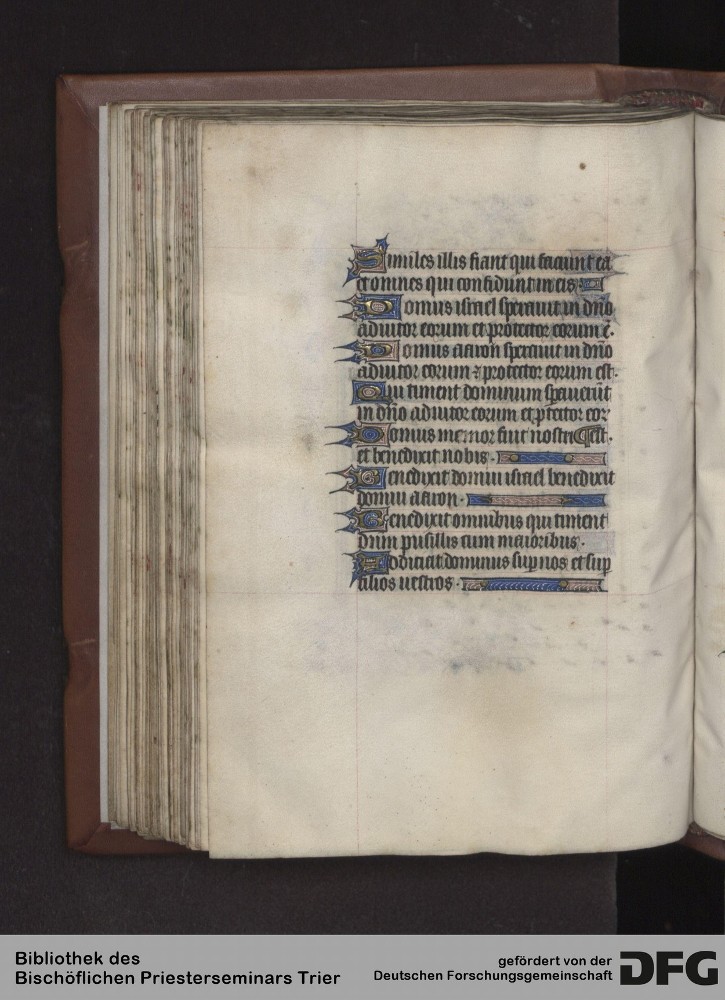 Similes illis fiant qui faciunt ea
et omnes qui confidunt in eis
Domus israel speravit in dño
adiutor eorum et protector eorum ē.
Domus aaron speravit in dño
adiutor eorum ⁊ protector eorum est.
Qui timent dominum speraverūt
in dño adiutor eorum et ꝑtector eoꝝ
Dominus memor fuit nostri est.
et benedixit nobis.
Benedixit domui israel benedixit
domui aaron.
Benedixit omnibus qui timent
dnm pusillis cum maioribus.
Adiciat dominus sup nos et sup
filios vestros.
Bibliothek des
Bischöflichen Priesterseminars Trier
gefördert von der
Deutschen Forschungsgemeinschaft
DFG